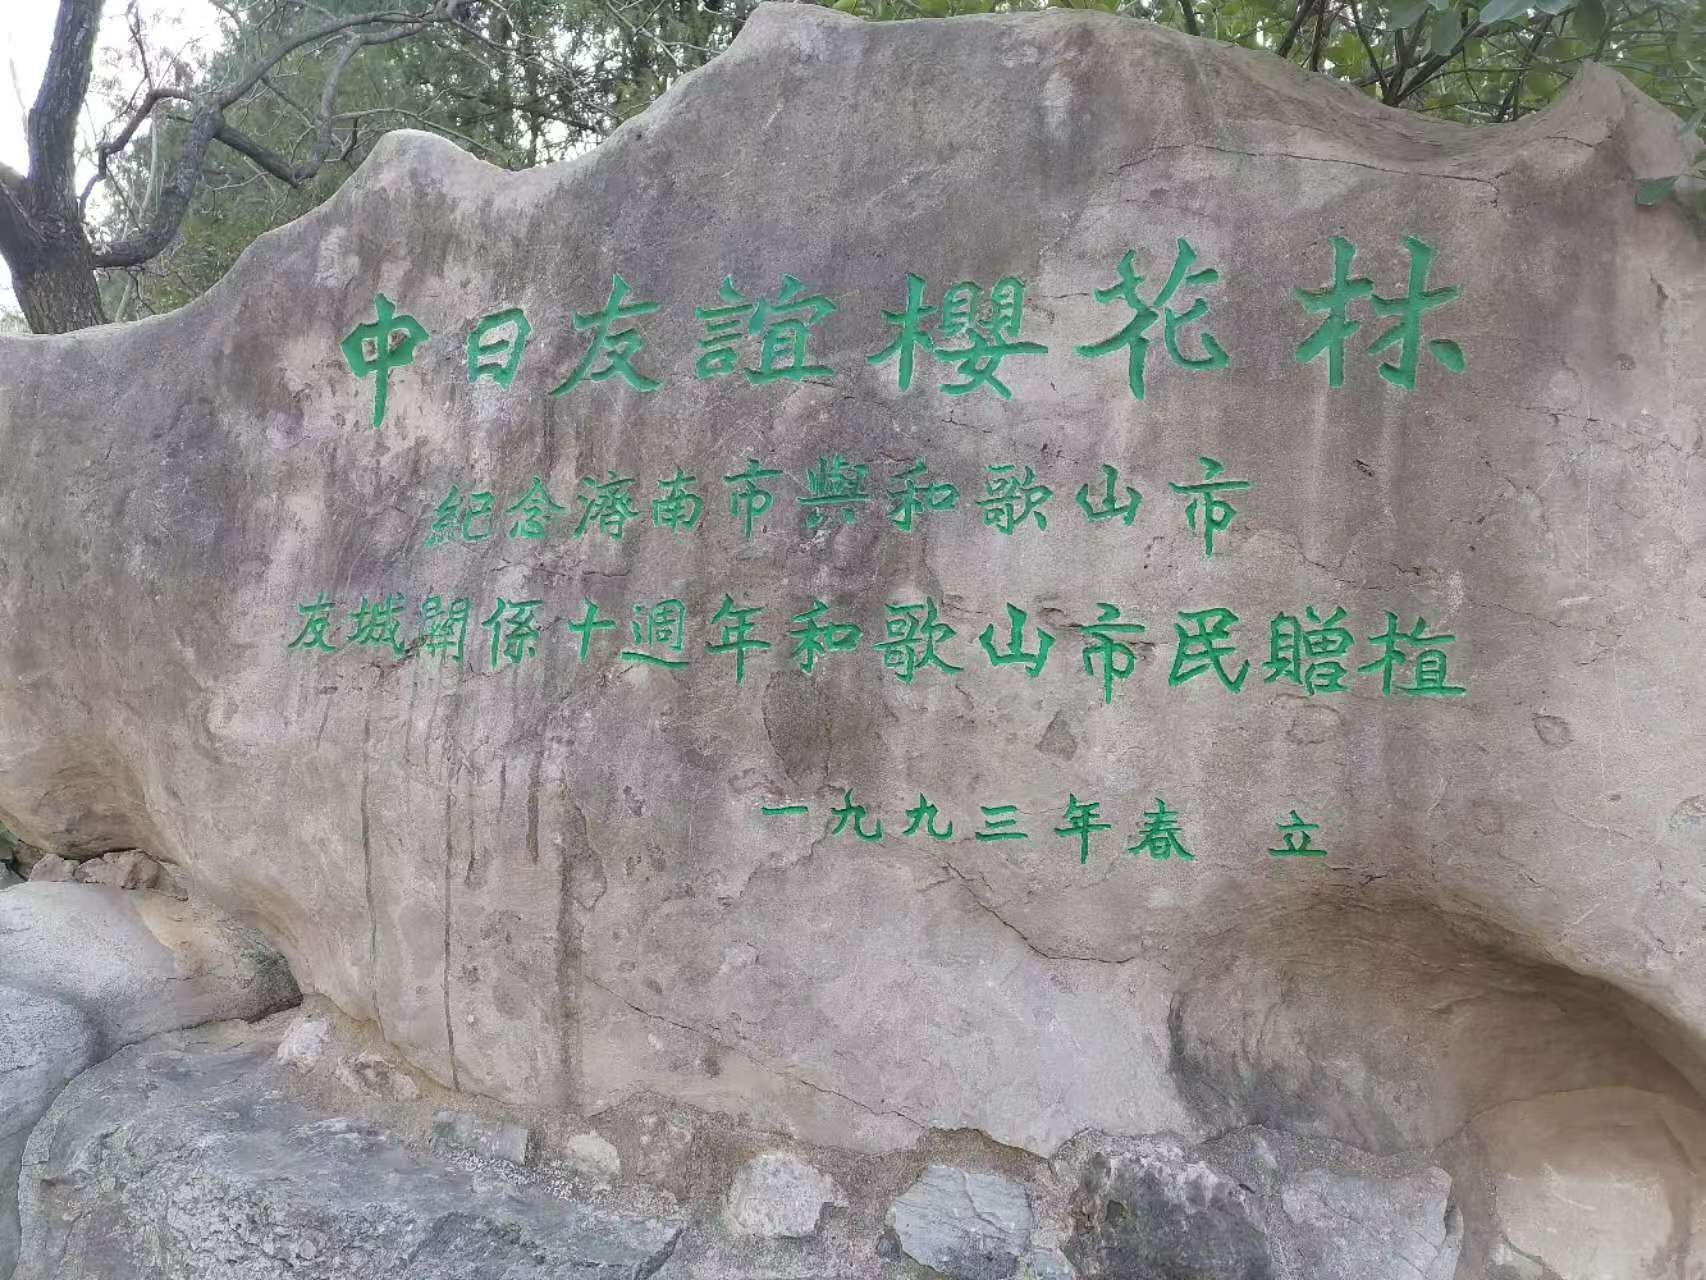 中日友誼櫻花林
紀念濟南市與和歌山市
友城關係十週年和歌山市民贈植
一九九三年春 立